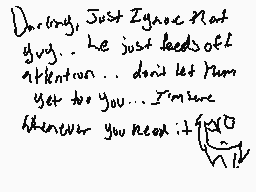 Darling, Just Ignore that
guy.. he just feeds off
attention... don't let them
get to you... I'm here
Whenever you need it